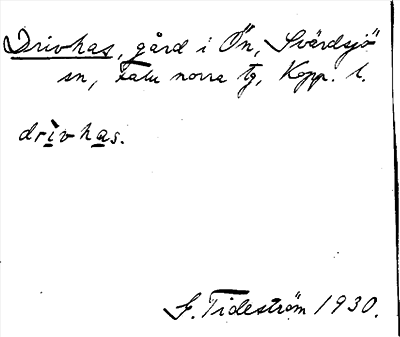 Drivhas, gård i Ön, Svärdsjö
sn, Falu norra tg, Kopp. l.
drìvhas.
G. Tideström 1930.